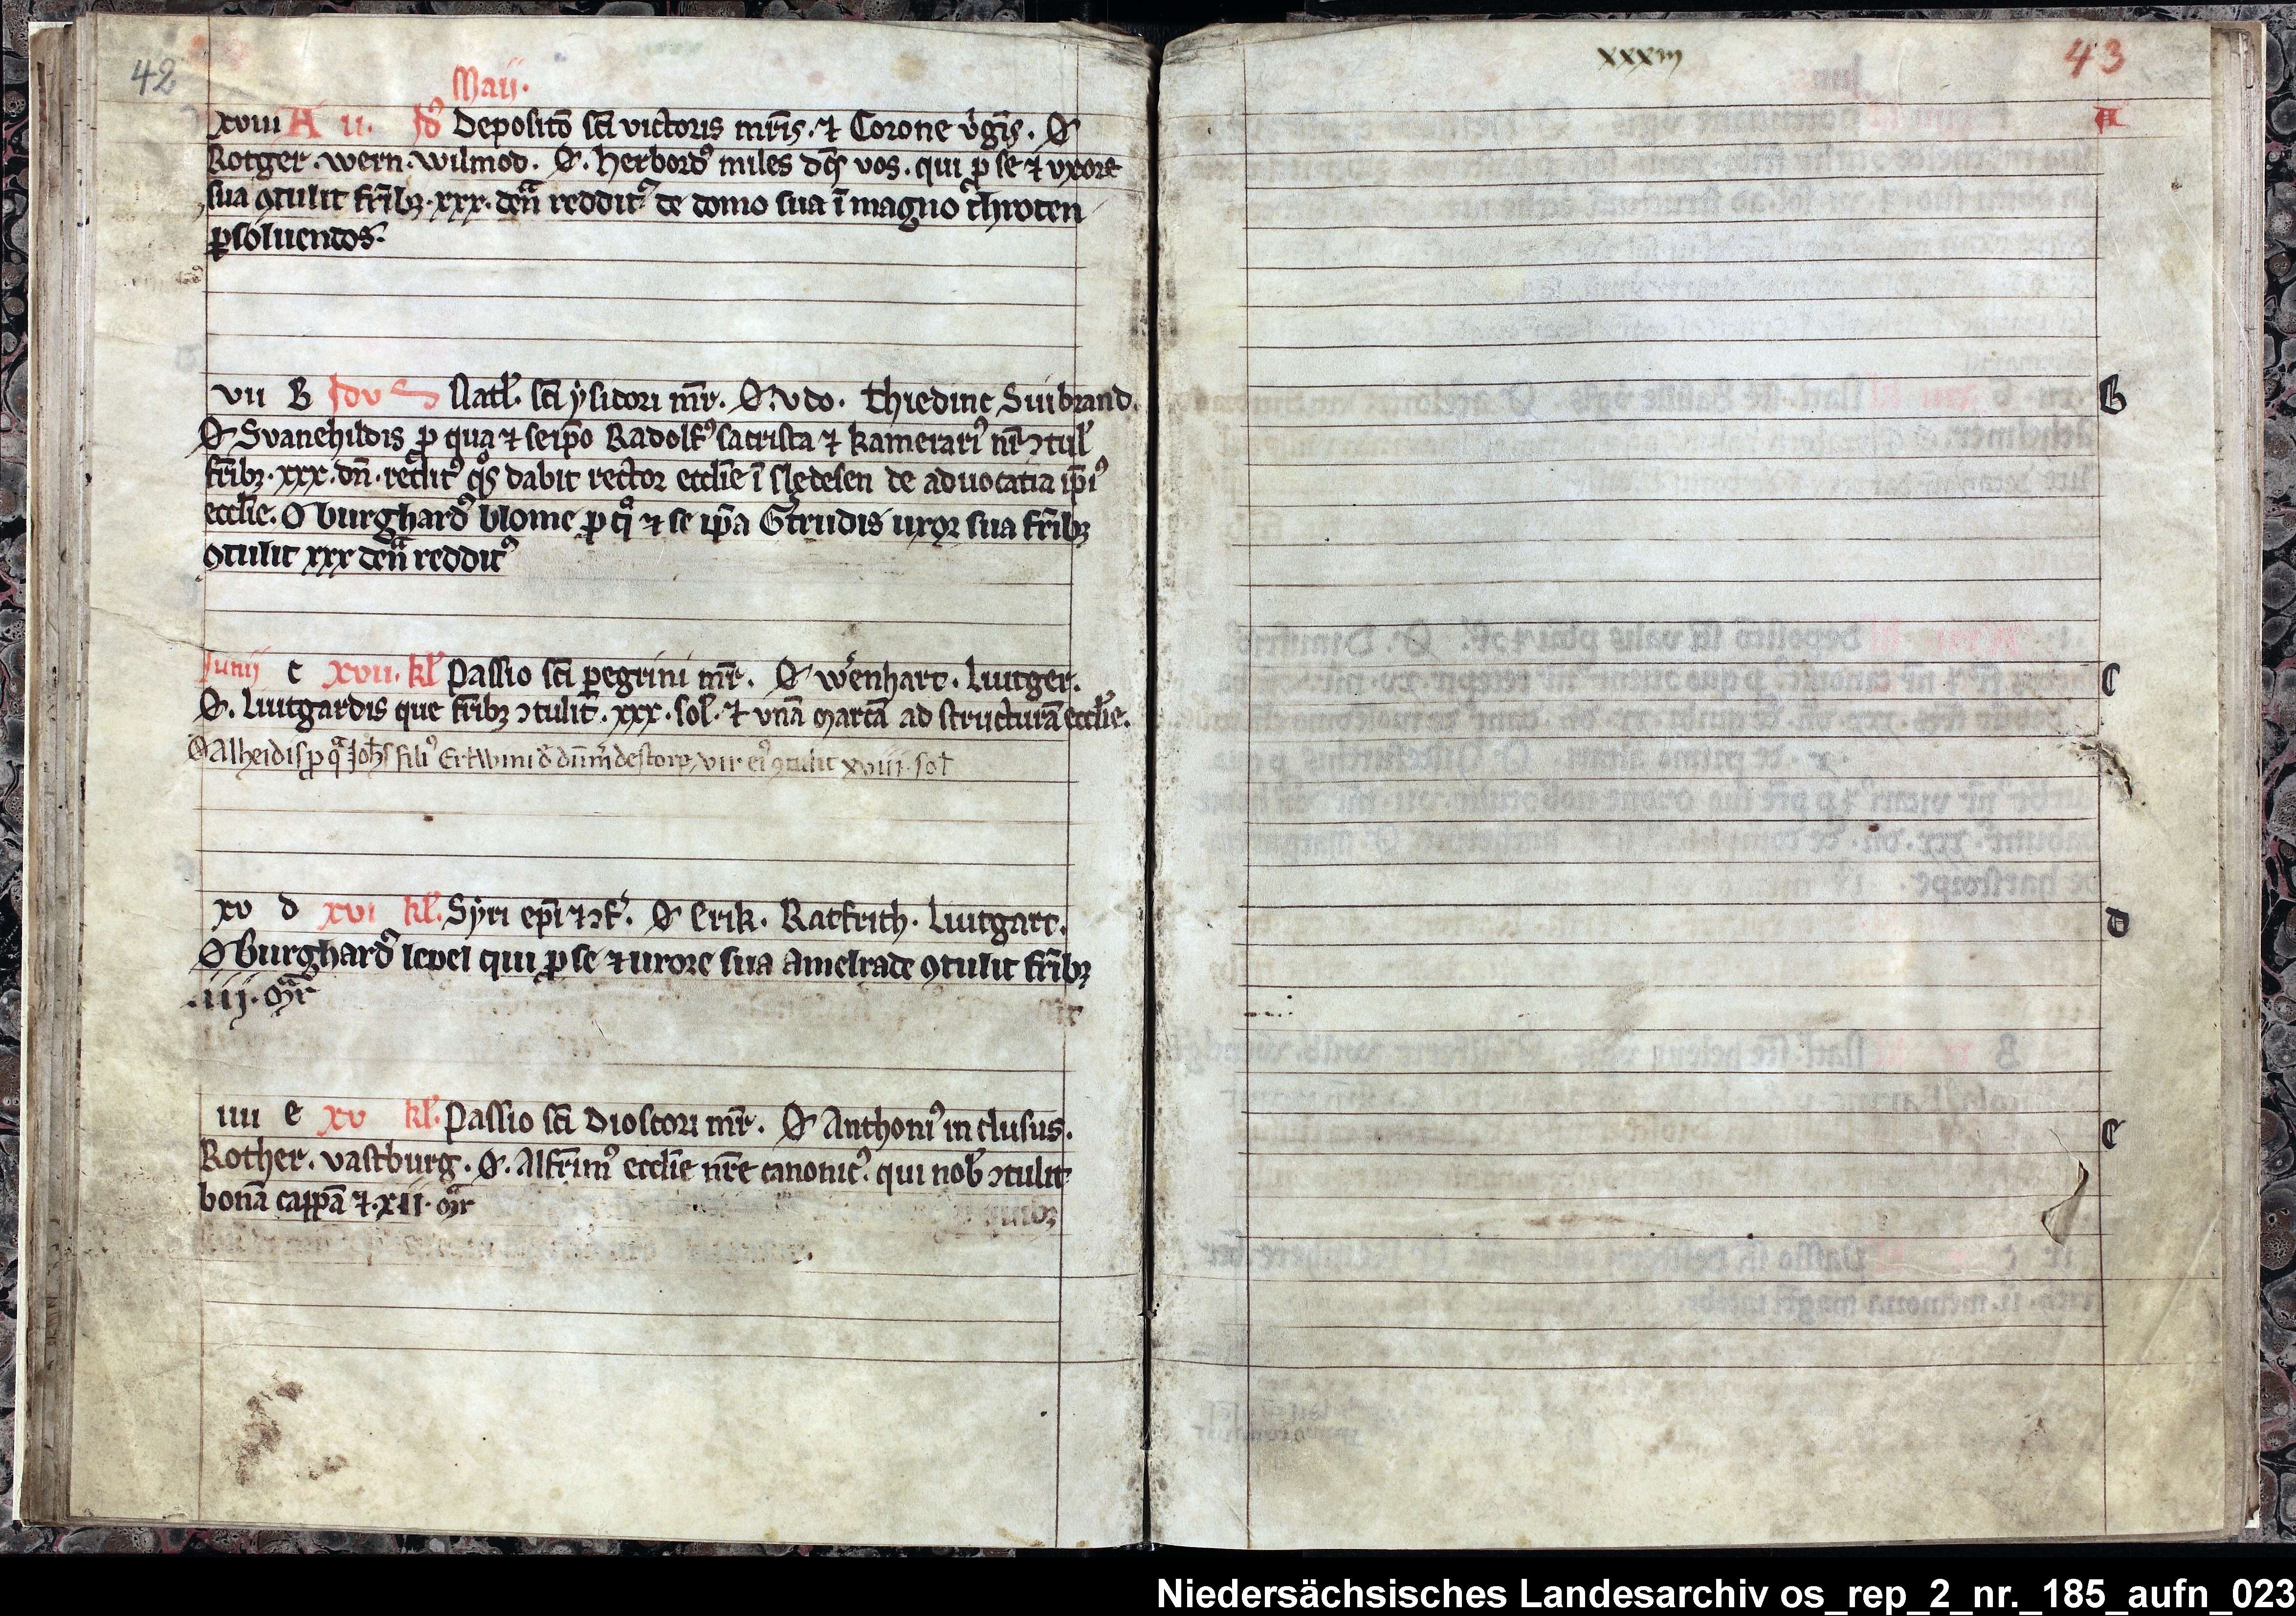 42
Maii.
xviii A ii. Id9 Deposito sci victoris mris. ⁊ Corone v'gis. O
Rotger. wern. wilmod. O. herbord9 miles dcs vos. qui p se ⁊ vxore
sua 9tulit frib3. xxx. den reddit9 de domo sua i magno throten
psoluentos.
vii B Idus Natl. sci ysidori mr. O. vdo. Thiedinc Suibrand.
O Svanehildis p qua ⁊ seipo Radolf9 sacrista ⁊ kamerari9 nr 9tul'
frib3. xxx. dn. reddit9 qs dabit rector ecclie i sledesen de aduocatia ipi9
ecclie. O burghard9 blome p q ⁊ se ipa Gtrudis uxor sua frib3
9tulit xxx den reddit9
Junij c xvii. kl Passio sci pegrini mr. O w'enhart. Liutger.
O. Liutgardis que frib3 9tulit. xxx. sol. ⁊ vna marca ad structura ecclie.
O Alheidis p q Johs fili9 Ertwini d' dumdestorp vir ei9 9tulit xviij. sol
xv d xvi kl. Syri epi ⁊ 9f. O Erik. Ratfrith. Liutgart.
O burghard9 level qui p se ⁊ uxore sua Amelrade 9tulit frib3
.iij. mr
iiii e xv kl. Passio sci Dioscori mr. O Anthoni9 inclusus.
Rother. vastburg. O. Alfrim9 ecclie nre canonic9. qui nob 9tulit
bona cappa ⁊. xii. mr
xxxiii
43
A
B
C
D
E
Niedersächsisches Landesarchiv os_rep_2_nr._185_aufn_023